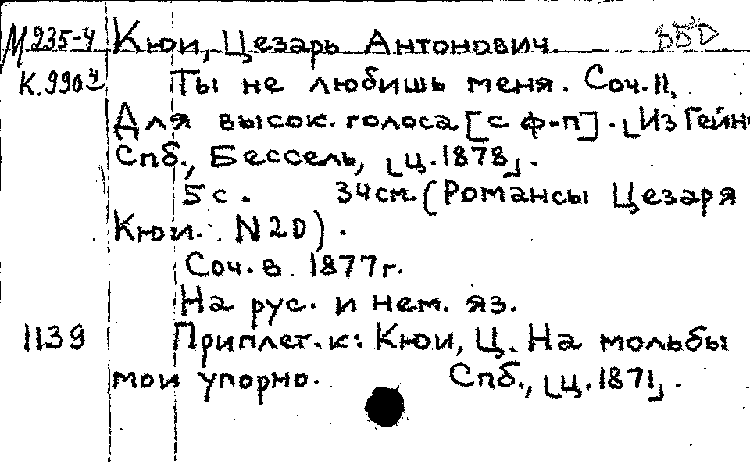 М 935-4 Кюи, Цезарь Антонович
К.990ч Ты не любишь меня. Соч. 11,
Для высок. голоса [с ф-п]. [Из Гейне
Спб., Бессель, [ц. 1878].
5 с. 34 см. (Романсы Цезаря
Кюи. N 20).
Соч. в 1877 г.
На рус. и нем. яз.
1139 Приплет. к: Кюи, Ц. На мольбы
мои упорно. Спб., [ц. 1871].